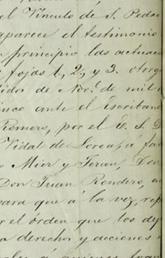 el Vínculo de S. Pedro
aparece el testimonio
principio las actua
fojas 1, 2, y 3. otorg
de Nov. de mil
ante el escribano
Romero, por el C. S. D.
Vidal de Lorca, a fa
Mier y Teran, Don
Don Juan Rondero, 
para que a la vez, rep
el orden que los dy
derechos y acciones